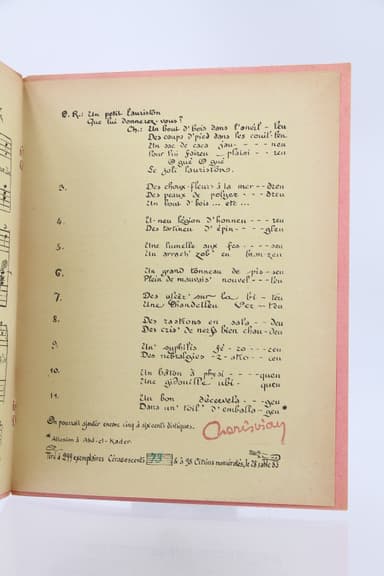 2. R.: Un petit lauriston
Que lui donnerez-vous?
Ch.: Un bout d'bois dans l'anéri - leu
Des coups d'pied dans les couil-leu
Un sac de caca jau - - - - neu
Pour lui faireu - plaisi - - reu
O gué O gué
Le joli lauriston.
3. Des choux-fleurs à la mer - - dreu
Des peaux de - - - dreu
Un bout d'bois ... etc ...
4. U-neu légion d'honneu - - - reu
Des tartineu d'épin - - - - gleu
5. Une lunelle aux fes - - - - seu
Un arrach' zob en ben-zeu
6. Un grand tonneau de pis - seu
Plein de mauvais' nouvel - - - leu
7. Des ulcèr' sur la bi - leu
Une Chandelleu Ver - teu
8. Des rastrons en sala - - deu
Des cris de nerfs bien chau - deu
9. Un' syphilis fé-ro - - - ceu
Des nébralgies -z- atro - - ceu
10. Un bâton à physi - - - - queu
Une gidouille ubi - queu
11. Un bon décervela - - - geu
Dans un' toil' d'emballa - geu *
On pourrait ajouter encore cinq à six cents distiques.
* Allusion à Abd-el-Kader.
Tiré à 299 exemplaires Céracoscents 73 & à 38 Citrins numérotés, le 28 sable 83